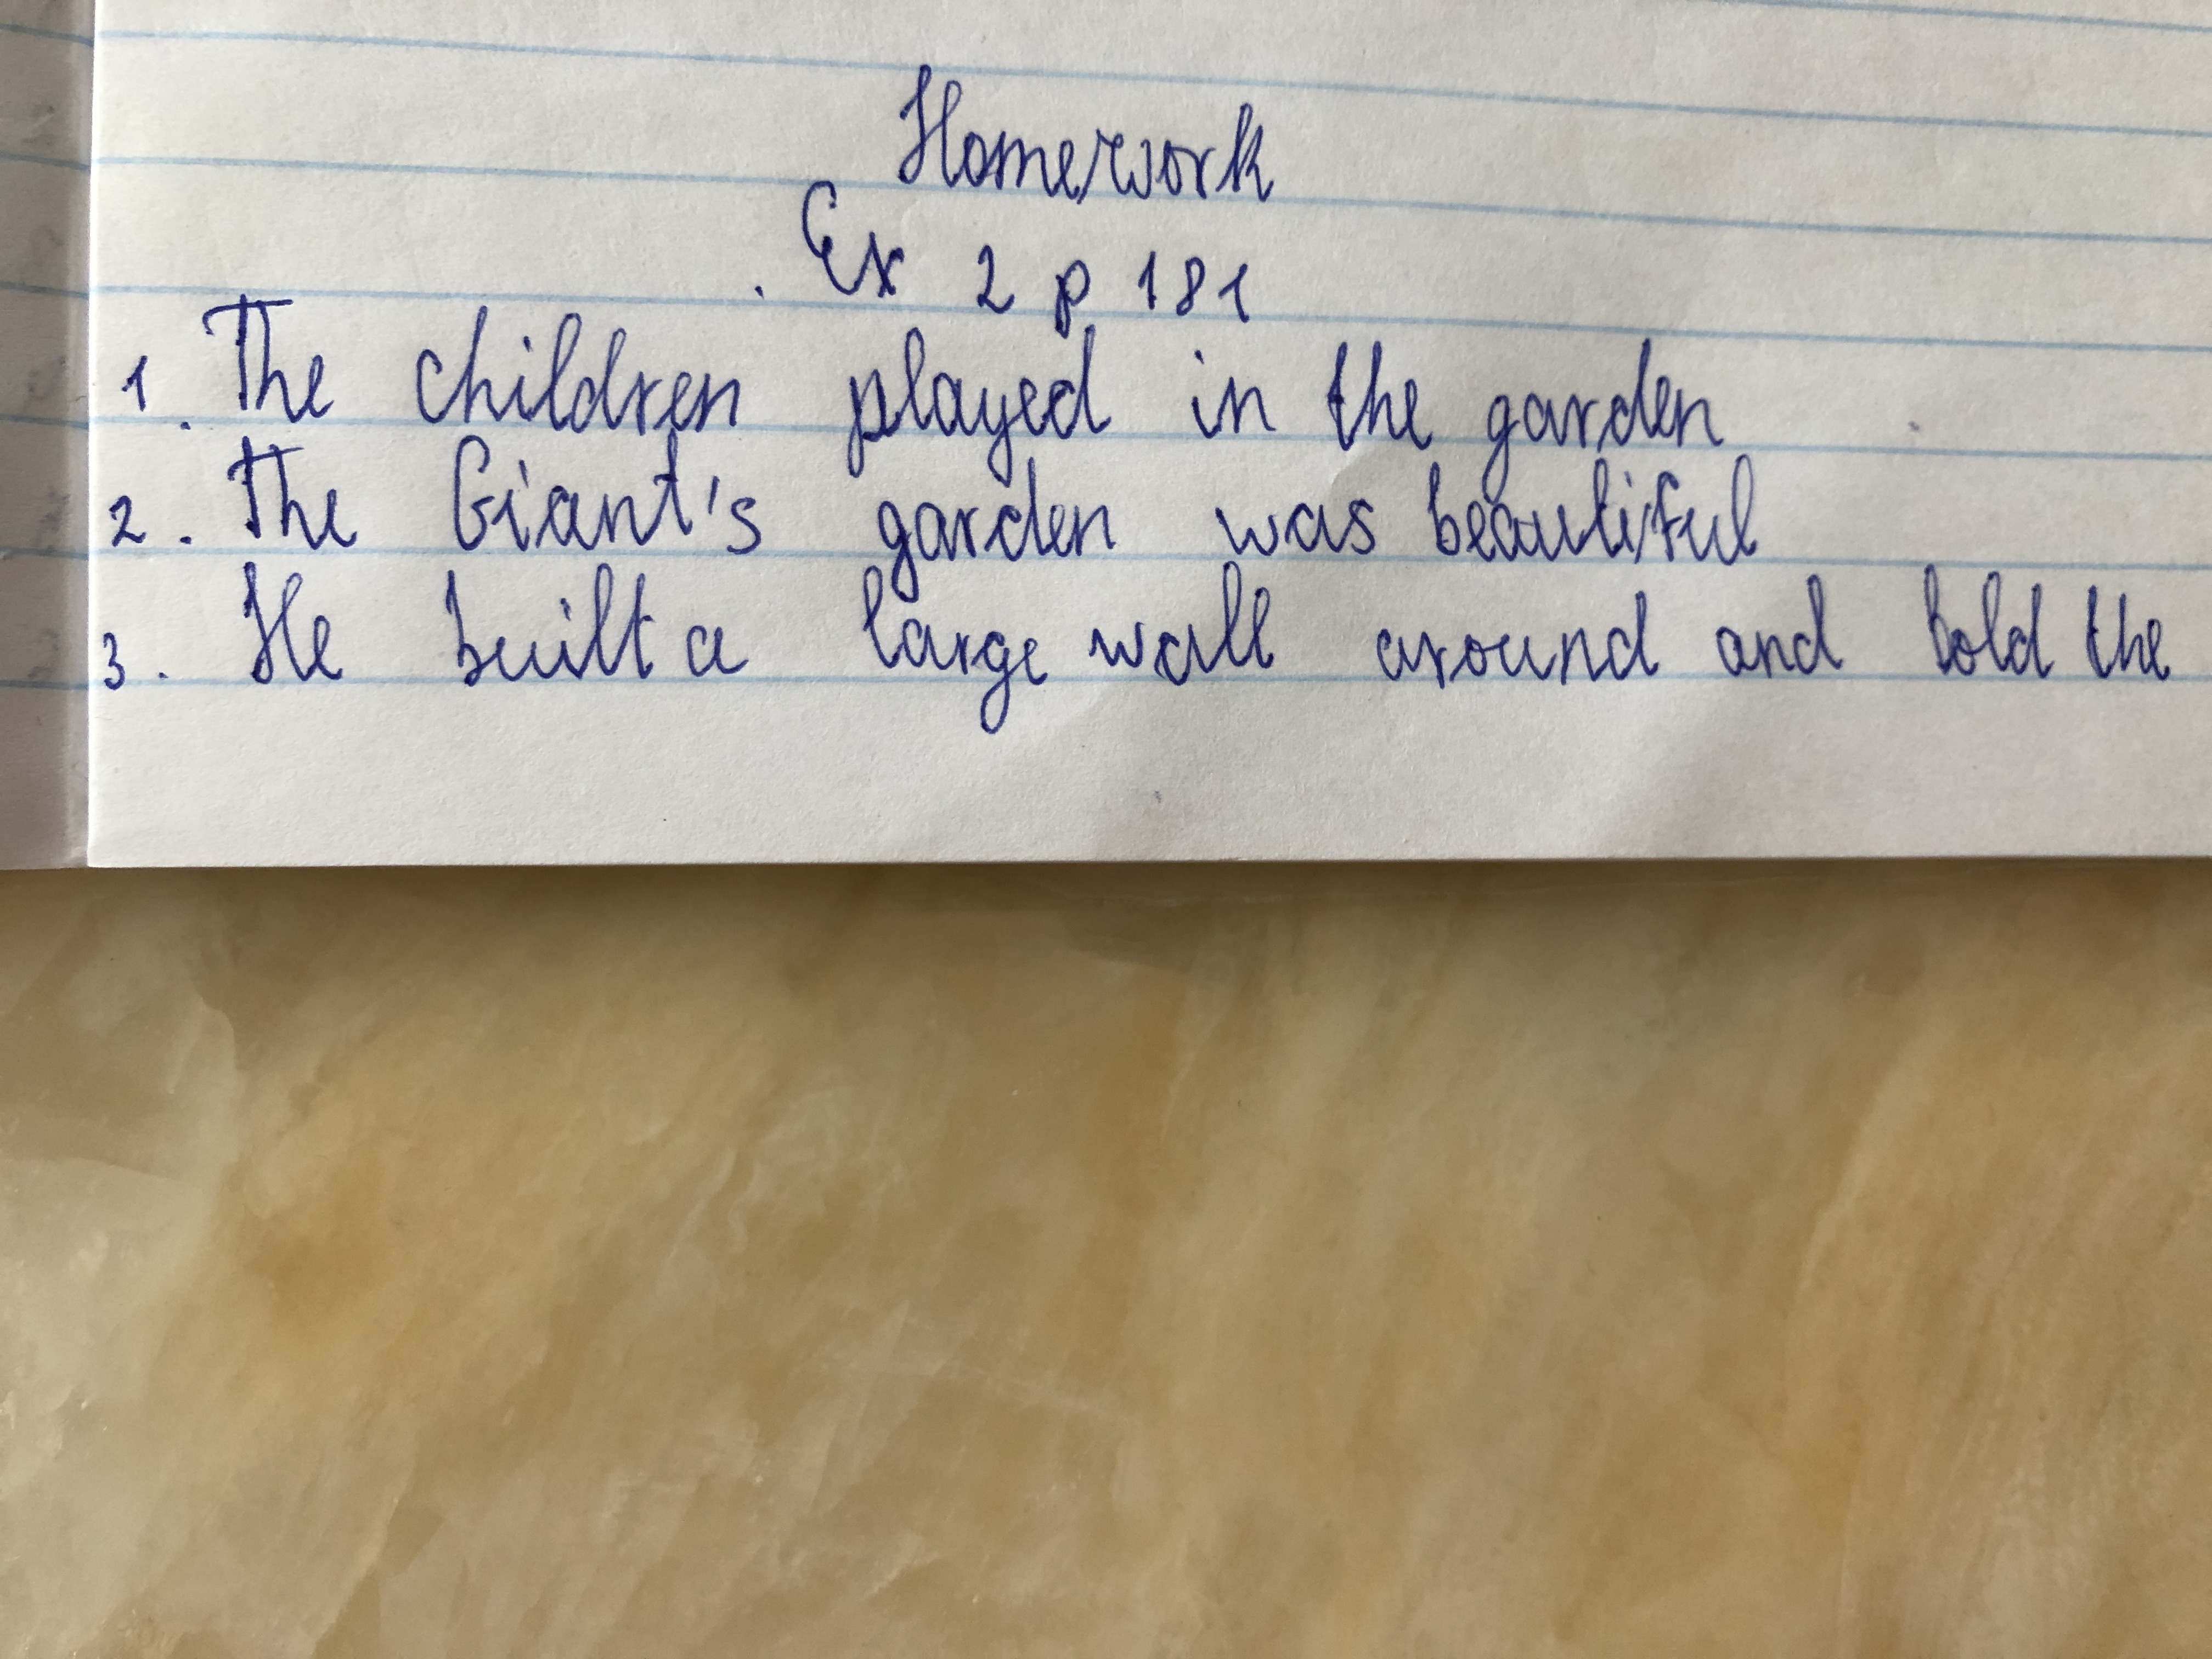 Homework
Ex 2 p 181
1. The children played in the garden
2. The Giant's garden was beautiful
3. He built a large wall around and told the